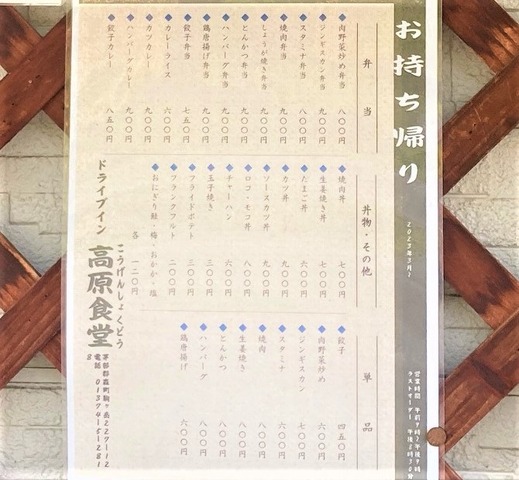 お持ち帰り
2023年3月〜
営業時間 午前9時〜午後9時
ラストオーダー 午後8時30分
弁当
◆肉野菜炒め弁当 八〇〇円
◆ジンギスカン弁当 九〇〇円
◆スタミナ弁当 八〇〇円
◆焼肉弁当 九〇〇円
◆しょうが焼き弁当 九〇〇円
◆とんかつ弁当 九〇〇円
◆ハンバーグ弁当 九〇〇円
◆鶏唐揚げ弁当 九〇〇円
◆餃子弁当 七五〇円
◆カレーライス 六〇〇円
◆カツカレー 九〇〇円
◆ハンバーグカレー 九〇〇円
◆餃子カレー 八五〇円
丼物・その他
◆焼肉丼 七〇〇円
◆生姜焼き丼 七〇〇円
◆たまご丼 六〇〇円
◆カツ丼 九〇〇円
◆ソースカツ丼 九〇〇円
◆ロコ・モコ丼 八〇〇円
◆チャーハン 六〇〇円
◆玉子焼き 三〇〇円
◆フライドポテト 三〇〇円
◆フランクフルト 二〇〇円
◆おにぎり鮭、梅、おかか・塩 各 一二〇円
単品
◆餃子 四五〇円
◆肉野菜炒め 六〇〇円
◆ジンギスカン 七〇〇円
◆スタミナ 六〇〇円
◆焼肉 八〇〇円
◆生姜焼き 八〇〇円
◆とんかつ 八〇〇円
◆ハンバーグ 八〇〇円
◆鶏唐揚げ 六〇〇円
ドライブイン
こうげんしょくどう
高原食堂
茅部郡森町駒ヶ岳
電話